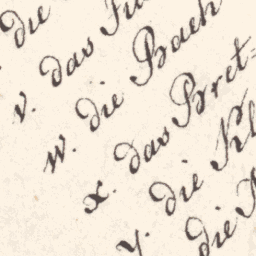 die
v. das
w. die Bach
x. das Bret-
y. die
die